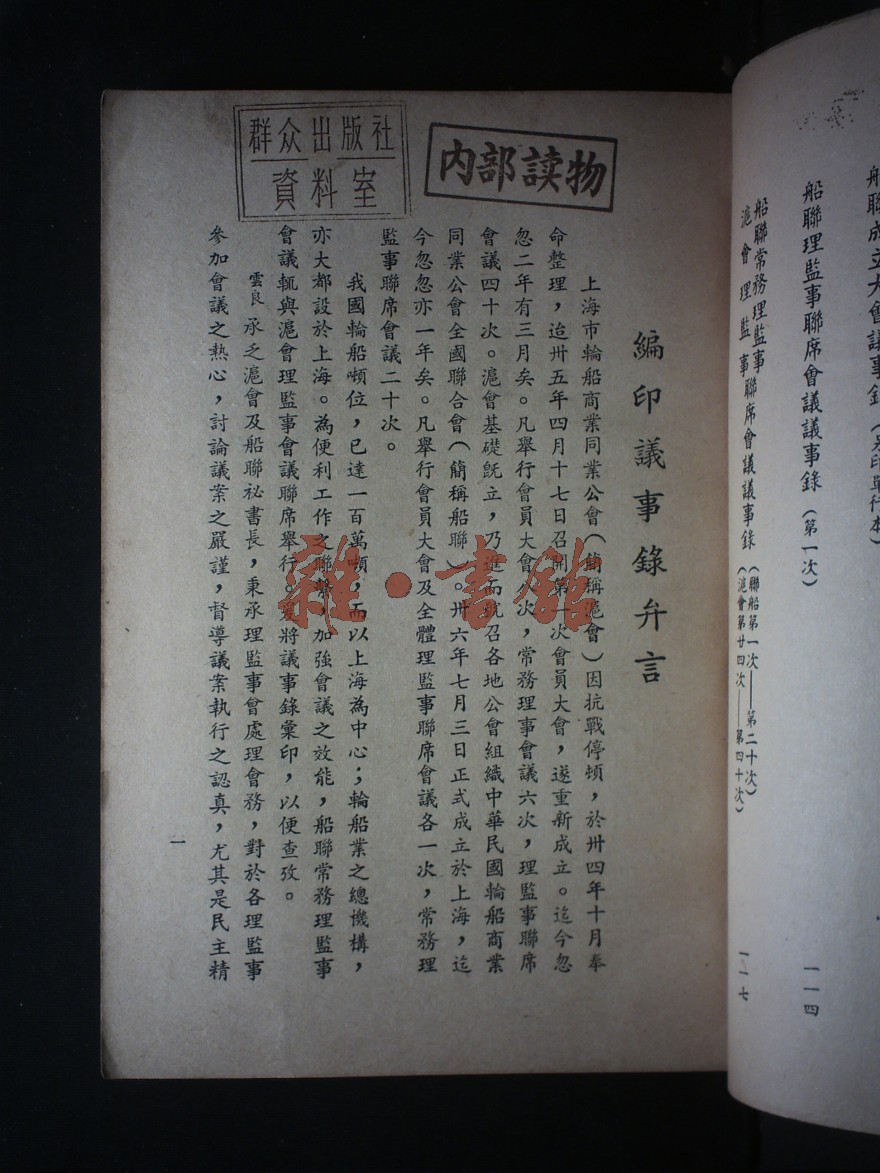 船聯成立大會議事錄(另印單行本)
船聯理監事聯席會議議事錄(第一次) 一一四
船聯常務理監事
滬會理監事聯席會議議事錄(聯船第一次——第二十次)
(滬會第廿四次——第四十次) 一一七
群众出版社
資料室
内部读物
編印議事錄弁言
上海市輪船商業同業公會(簡稱滬會)因抗戰停頓,於卅四年十月奉
命整理,迨卅五年四月十七日召開第一次會員大會,遂重新成立。迄今忽
忽二年有三月矣。凡舉行會員大會 次,常務理事會議六次,理監事聯席
會議四十次。滬會基礎既立,乃進而 召各地公會組織中華民國輪船商業
同業公會全國聯合會(簡稱船聯)。卅六年七月三日正式成立於上海,迄
今忽忽亦一年矣。凡舉行會員大會及全體理監事聯席會議各一次,常務理
監事聯席會議二十次。
我國輪船噸位,已達一百萬噸,而以上海為中心;輪船業之總機構,
亦大都設於上海。為便利工作之聯繫,加強會議之效能,船聯常務理監事
會議輒與滬會理監事會議聯席舉行。爰將議事錄彙印,以便查攷。
雲良承乏滬會及船聯祕書長,秉承理監事會處理會務,對於各理監事
參加會議之熱心,討論議案之嚴謹,督導議案執行之認真,尤其是民主精
一
雜·書館